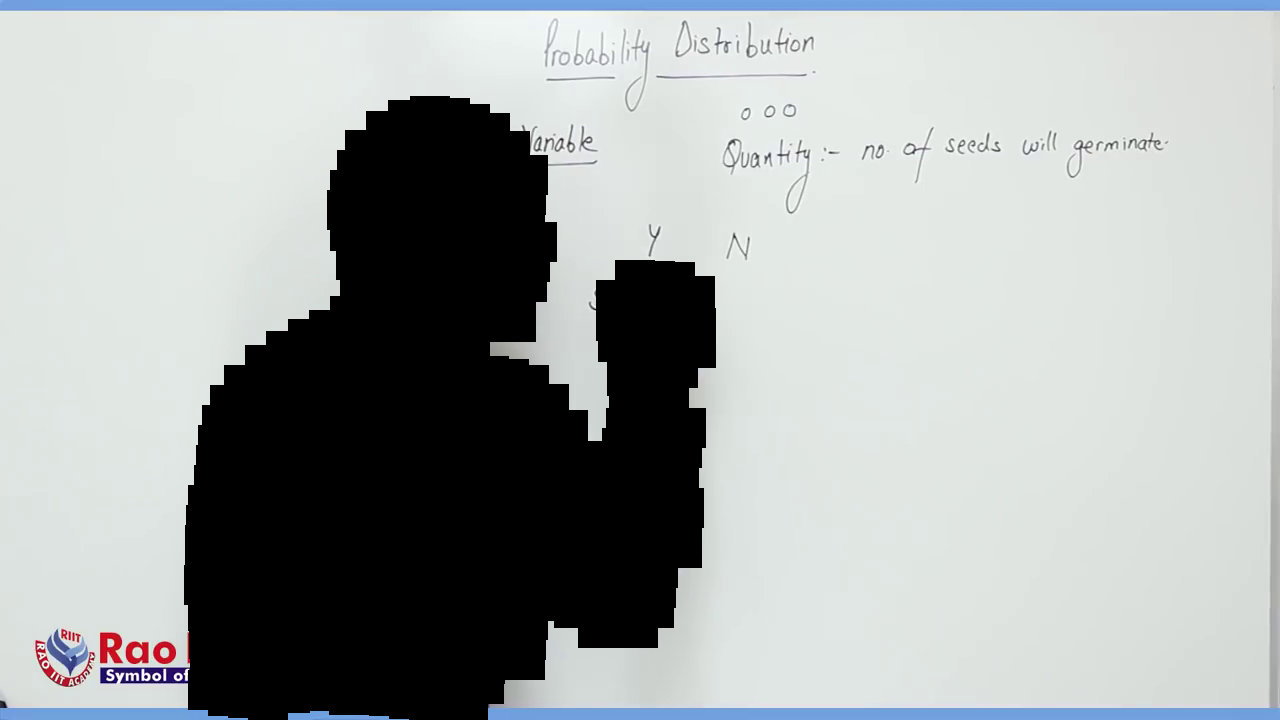 Probability Distribution
Variable
o o o
Quantity :- no. of seeds will germinate.
Y N
RIIT
RAO IIT ACADEMY
Rao
Symbol of